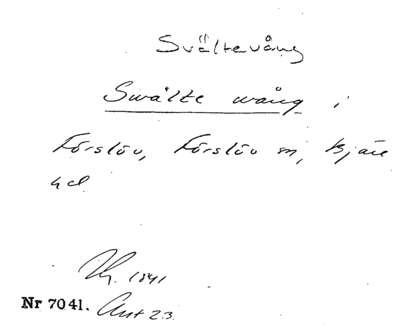 Svältevång
Swälte wång i
Förslöv, Förslöv sn, Bjäre
hd.
1841
Nr 7041. Akt 23.